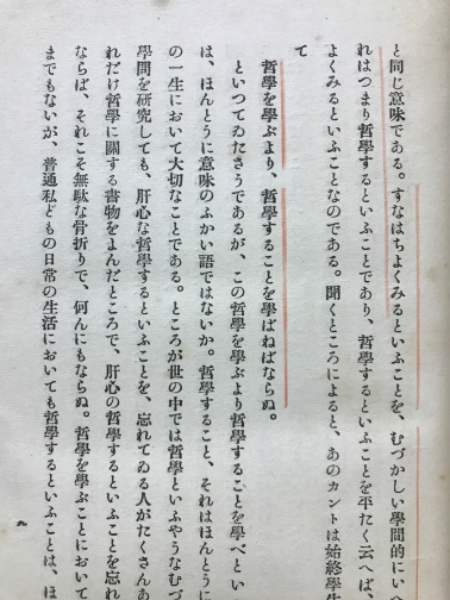 と同じ意味である。すなはちよくみるといふことを、むづかしい學問的にいへ
れはつまり哲學するといふことであり、哲學するといふことを平たく云へば、
よくみるといふことなのである。聞くところによると、あのカントは始終學生
て
哲學を學ぶより、哲學することを學ばねばならぬ。
といつてゐたさうであるが、この哲學を學ぶより哲學することを學べとい
は、ほんとうに意味のふかい語ではないか。哲學すること、それはほんとうに
の一生において大切なことである。ところが世の中では哲學といふやうなむづ
學問を研究しても、肝心な哲學するといふことを、忘れてゐる人がたくさんあ
れだけ哲學に關する書物をよんだところで、肝心の哲學するといふことを忘れ
ならば、それこそ無駄な骨折りで、何んにもならぬ。哲學を學ぶことにおいて
までもないが、普通私どもの日常の生活においても哲學するといふことは、ほ
九